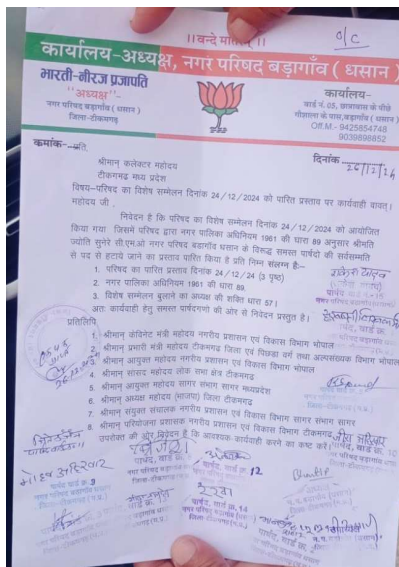 ।। वन्दे मातरम् ।।
O/C
कार्यालय-अध्यक्ष, नगर परिषद बड़ागाँव ( धसान )
भारती-नीरज प्रजापति
"अध्यक्ष"-
नगर परिषद बड़ागाँव ( धसान )
जिला-टीकमगढ़
कार्यालय-
वार्ड नं. 05, छात्रावास के पीछे
गौशाला के पास, बड़ागाँव ( धसान )
Off.M.- 9425854748
9039898852
कमांक-
प्रति,
दिनांक 26/12/24
श्रीमान् कलेक्टर महोदय
टीकगमढ़ मध्य प्रदेश
विषय-परिषद का विशेष सम्मेलन दिनांक 24/12/2024 को पारित प्रस्ताव पर कार्यवाही वावत्।
महोदय जी,
निवेदन है कि परिषद का विशेष सम्मेलन दिनांक 24/12/2024 को आयोजित
किया गया जिसमें परिषद द्वारा नगर पालिका अधिनियम 1961 की धारा 89 अनुसार श्रीमति
ज्योति सुनेरे सी.एम.ओ नगर परिषद बड़ागांव धसान के विरूद्ध समस्त पार्षदो की सर्वसम्मति
से पद से हटाये जाने का प्रस्ताव पारित किया है प्रति निम्न संलग्न हैः-
1. परिषद का पारित प्रस्ताव दिनांक 24/12/24 (3 पृष्ठ)
2. नगर पालिका अधिनियम 1961 की धारा 89.
3. विशेष सम्मेलन बुलाने का अध्यक्ष की शक्ति धारा 57।
अतः कार्यवाही हेतु समस्त पार्षदगणों की ओर से निवेदन प्रस्तुत है।
प्रतिलिपि
1. श्रीमान् केविनेट मंत्री महोदय नगरीय प्रशासन एवं विकास विभाग भोपाल
2. श्रीमान् प्रभारी मंत्री महोदय टीकमगढ़ जिला एवं पिछड़ा वर्ग तथा अल्पसंख्यक विभाग भोपाल
3. श्रीमान् आयुक्त महोदय नगरीय प्रशासन एवं विकास विभाग भोपाल
4. श्रीमान् सासद महोदय लोक सभा क्षेत्र टीकमगढ़
5. श्रीमान् आयुक्त महोदय सागर संभाग सागर मध्यप्रदेश
6. श्रीमान् अध्यक्ष महोदय (भाजपा) जिला टीकमगढ़
7. श्रीमान् संयुक्त संचालक नगरीय प्रशासन एवं विकास विभाग सागर संभाग सागर
8. श्रीमान् परियोजना प्रशासक नगरीय प्रशासन एवं विकास विभाग टीकमगढ़
उपरोक्त की ओर निवेदन है कि आवश्यक कार्यवाही करने का कष्ट करें।
पार्षद, वार्ड क्र. 9
12
पार्षद, वार्ड क्र. 14